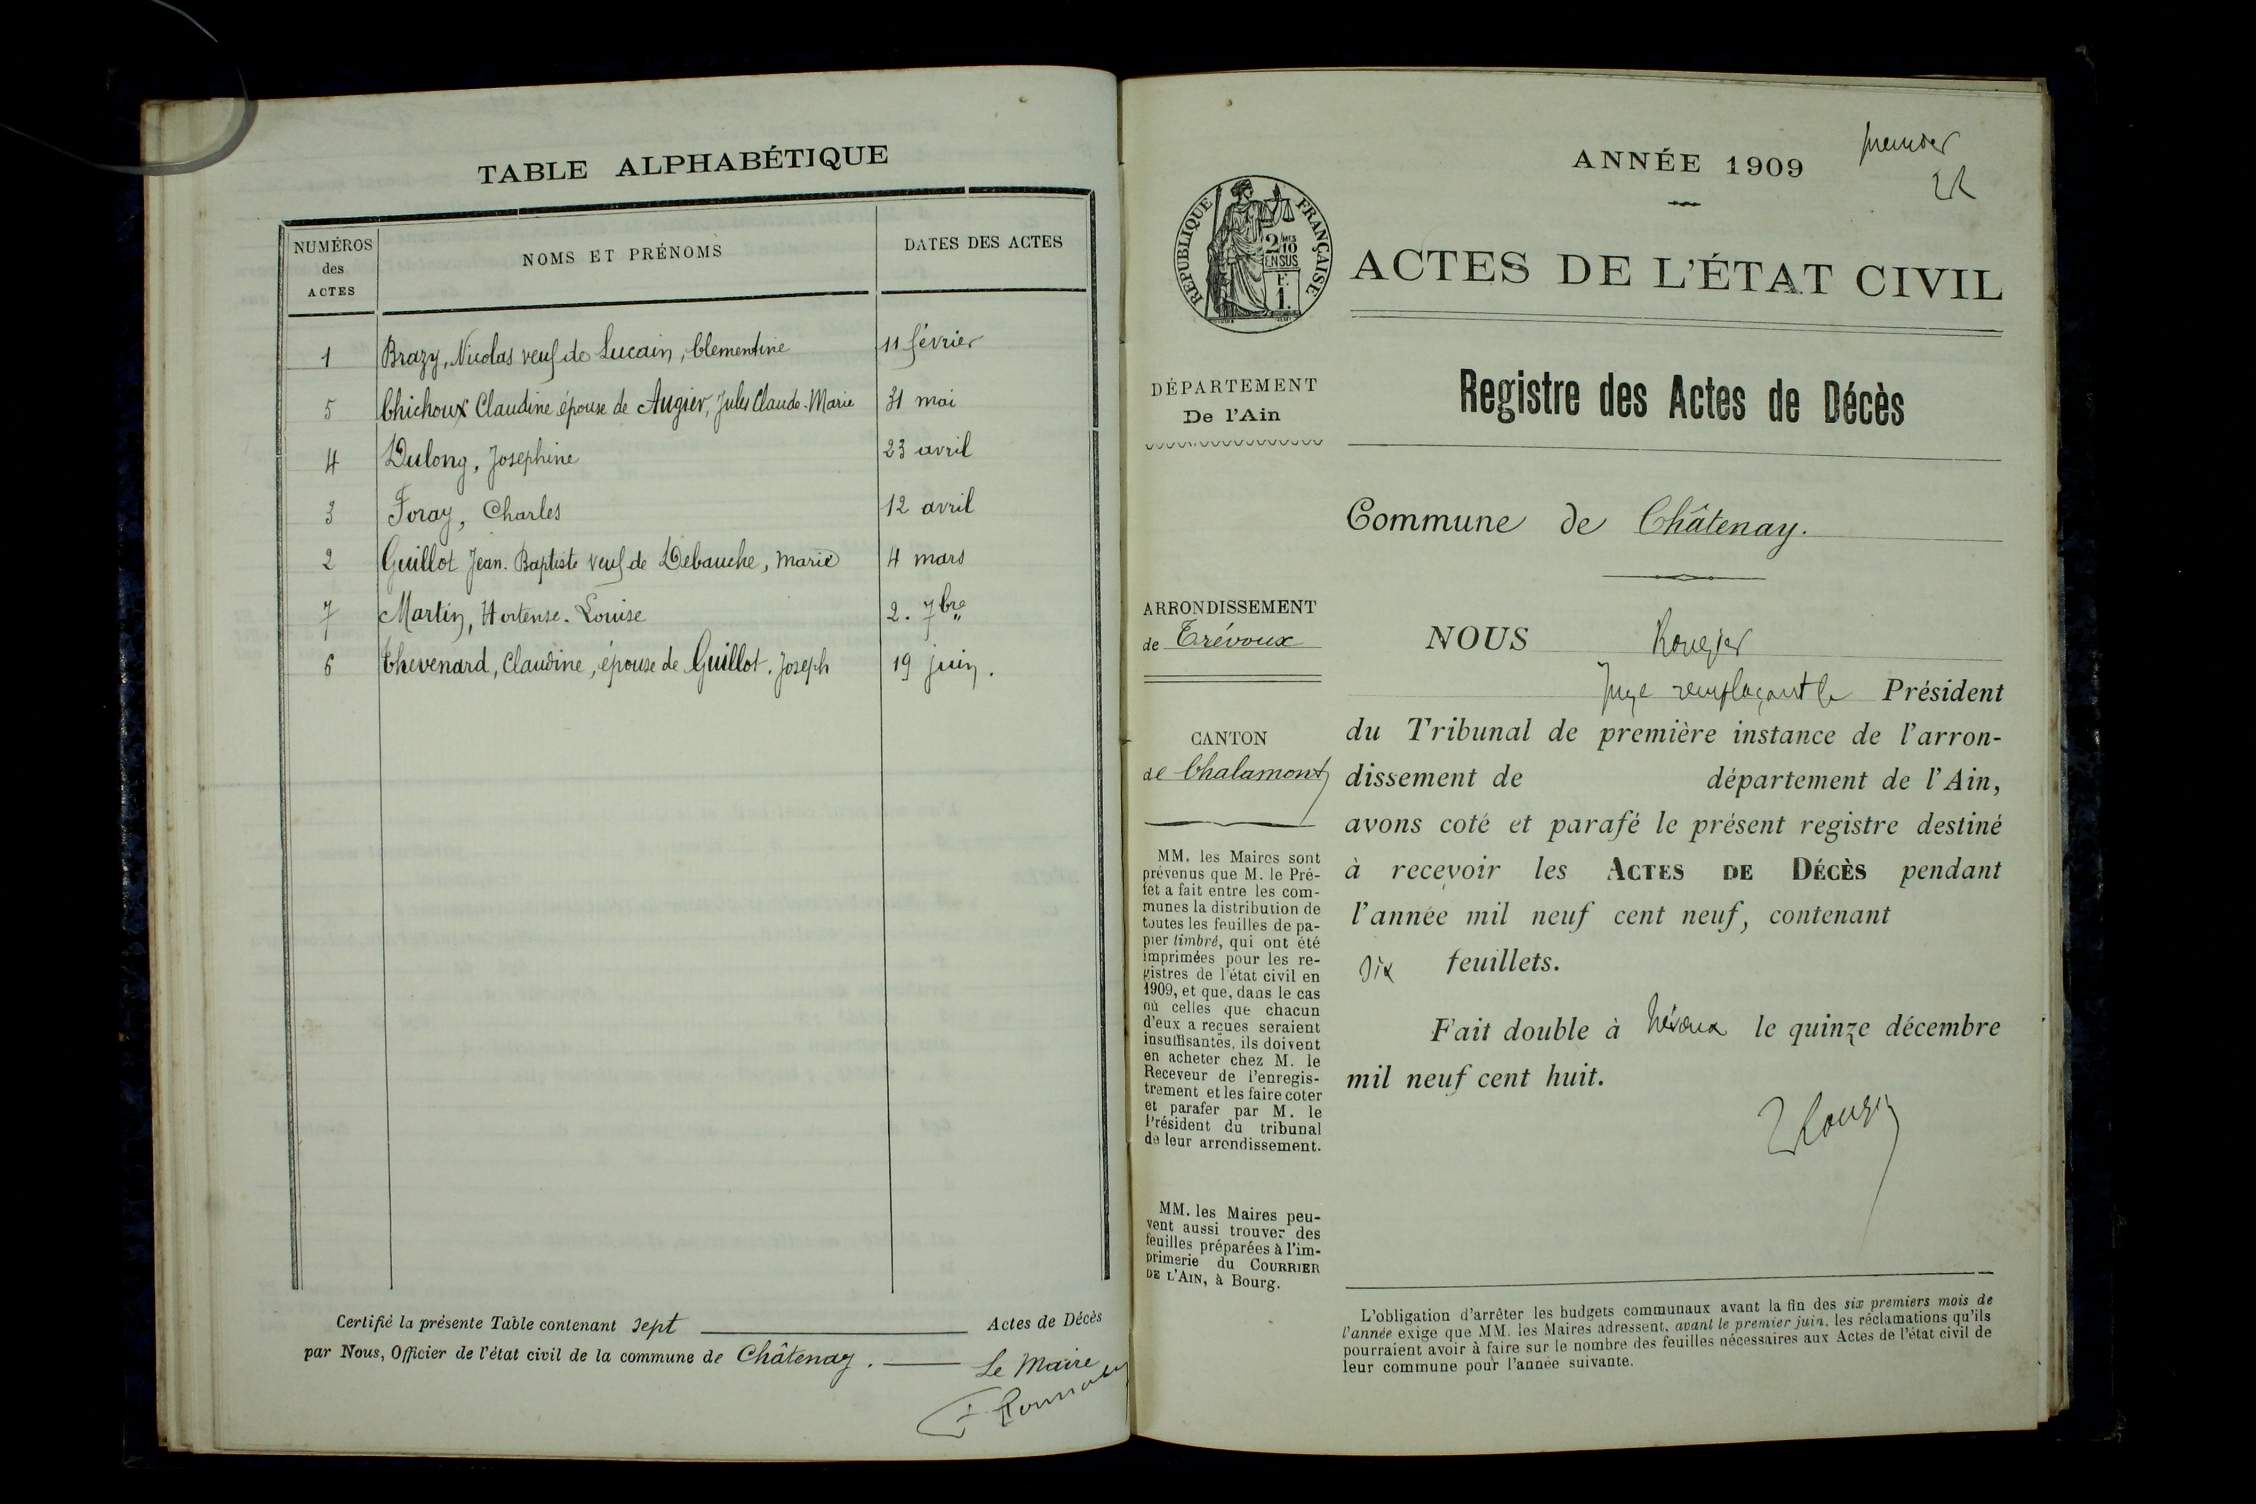 TABLE ALPHABÉTIQUE
NUMÉROS
des
ACTES
NOMS ET PRÉNOMS
DATES DES ACTES
1 Brazy, Nicolas veuf de Lucain, Clementine 11 février
5 Chichoux Claudine épouse de Augier, Jules Claude-Marie 31 mai
4 Dulong, Josephine 23 avril
3 Foray, Charles 12 avril
2 Guillot Jean-Baptiste veuf de Debauche, Marie 4 mars
7 Martin, Hortense-Louise 2. 7bre
6 Thevenard, Claudine, épouse de Guillot. Joseph 19 juin.
Certifié la présente Table contenant sept Actes de Décès
par Nous, Officier de l'état civil de la commune de Châtenay.
Le Maire
premier
ANNÉE 1909
RÉPUBLIQUE FRANÇAISE
2/10
EN SUS
1.
ACTES DE L'ÉTAT CIVIL
DÉPARTEMENT
De l'Ain
ARRONDISSEMENT
de Trévoux
CANTON
de Chalamont
MM. les Maires sont
prévenus que M. le Pré-
fet a fait entre les com-
munes la distribution de
toutes les feuilles de pa-
pier timbré, qui ont été
imprimées pour les re-
gistres de l'état civil en
1909, et que, dans le cas
où celles que chacun
d'eux a reçues seraient
insuffisantes, ils doivent
en acheter chez M. le
Receveur de l'enregis-
trement et les faire coter
et parafer par M. le
Président du tribunal
de leur arrondissement.
MM. les Maires peu-
vent aussi trouver des
feuilles préparées à l'im-
primerie du COURRIER
DE L'AIN, à Bourg.
Registre des Actes de Décès
Commune de Châtenay.
NOUS Rougier
Juge remplaçant le Président
du Tribunal de première instance de l'arron-
dissement de département de l'Ain,
avons coté et parafé le présent registre destiné
à recevoir les ACTES DE DÉCÈS pendant
l'année mil neuf cent neuf, contenant
six feuillets.
Fait double à Trévoux le quinze décembre
mil neuf cent huit.
Rougier
L'obligation d'arrêter les budgets communaux avant la fin des six premiers mois de
l'année exige que MM. les Maires adressent, avant le premier juin, les réclamations qu'ils
pourraient avoir à faire sur le nombre des feuilles nécessaires aux Actes de l'état civil de
leur commune pour l'année suivante.